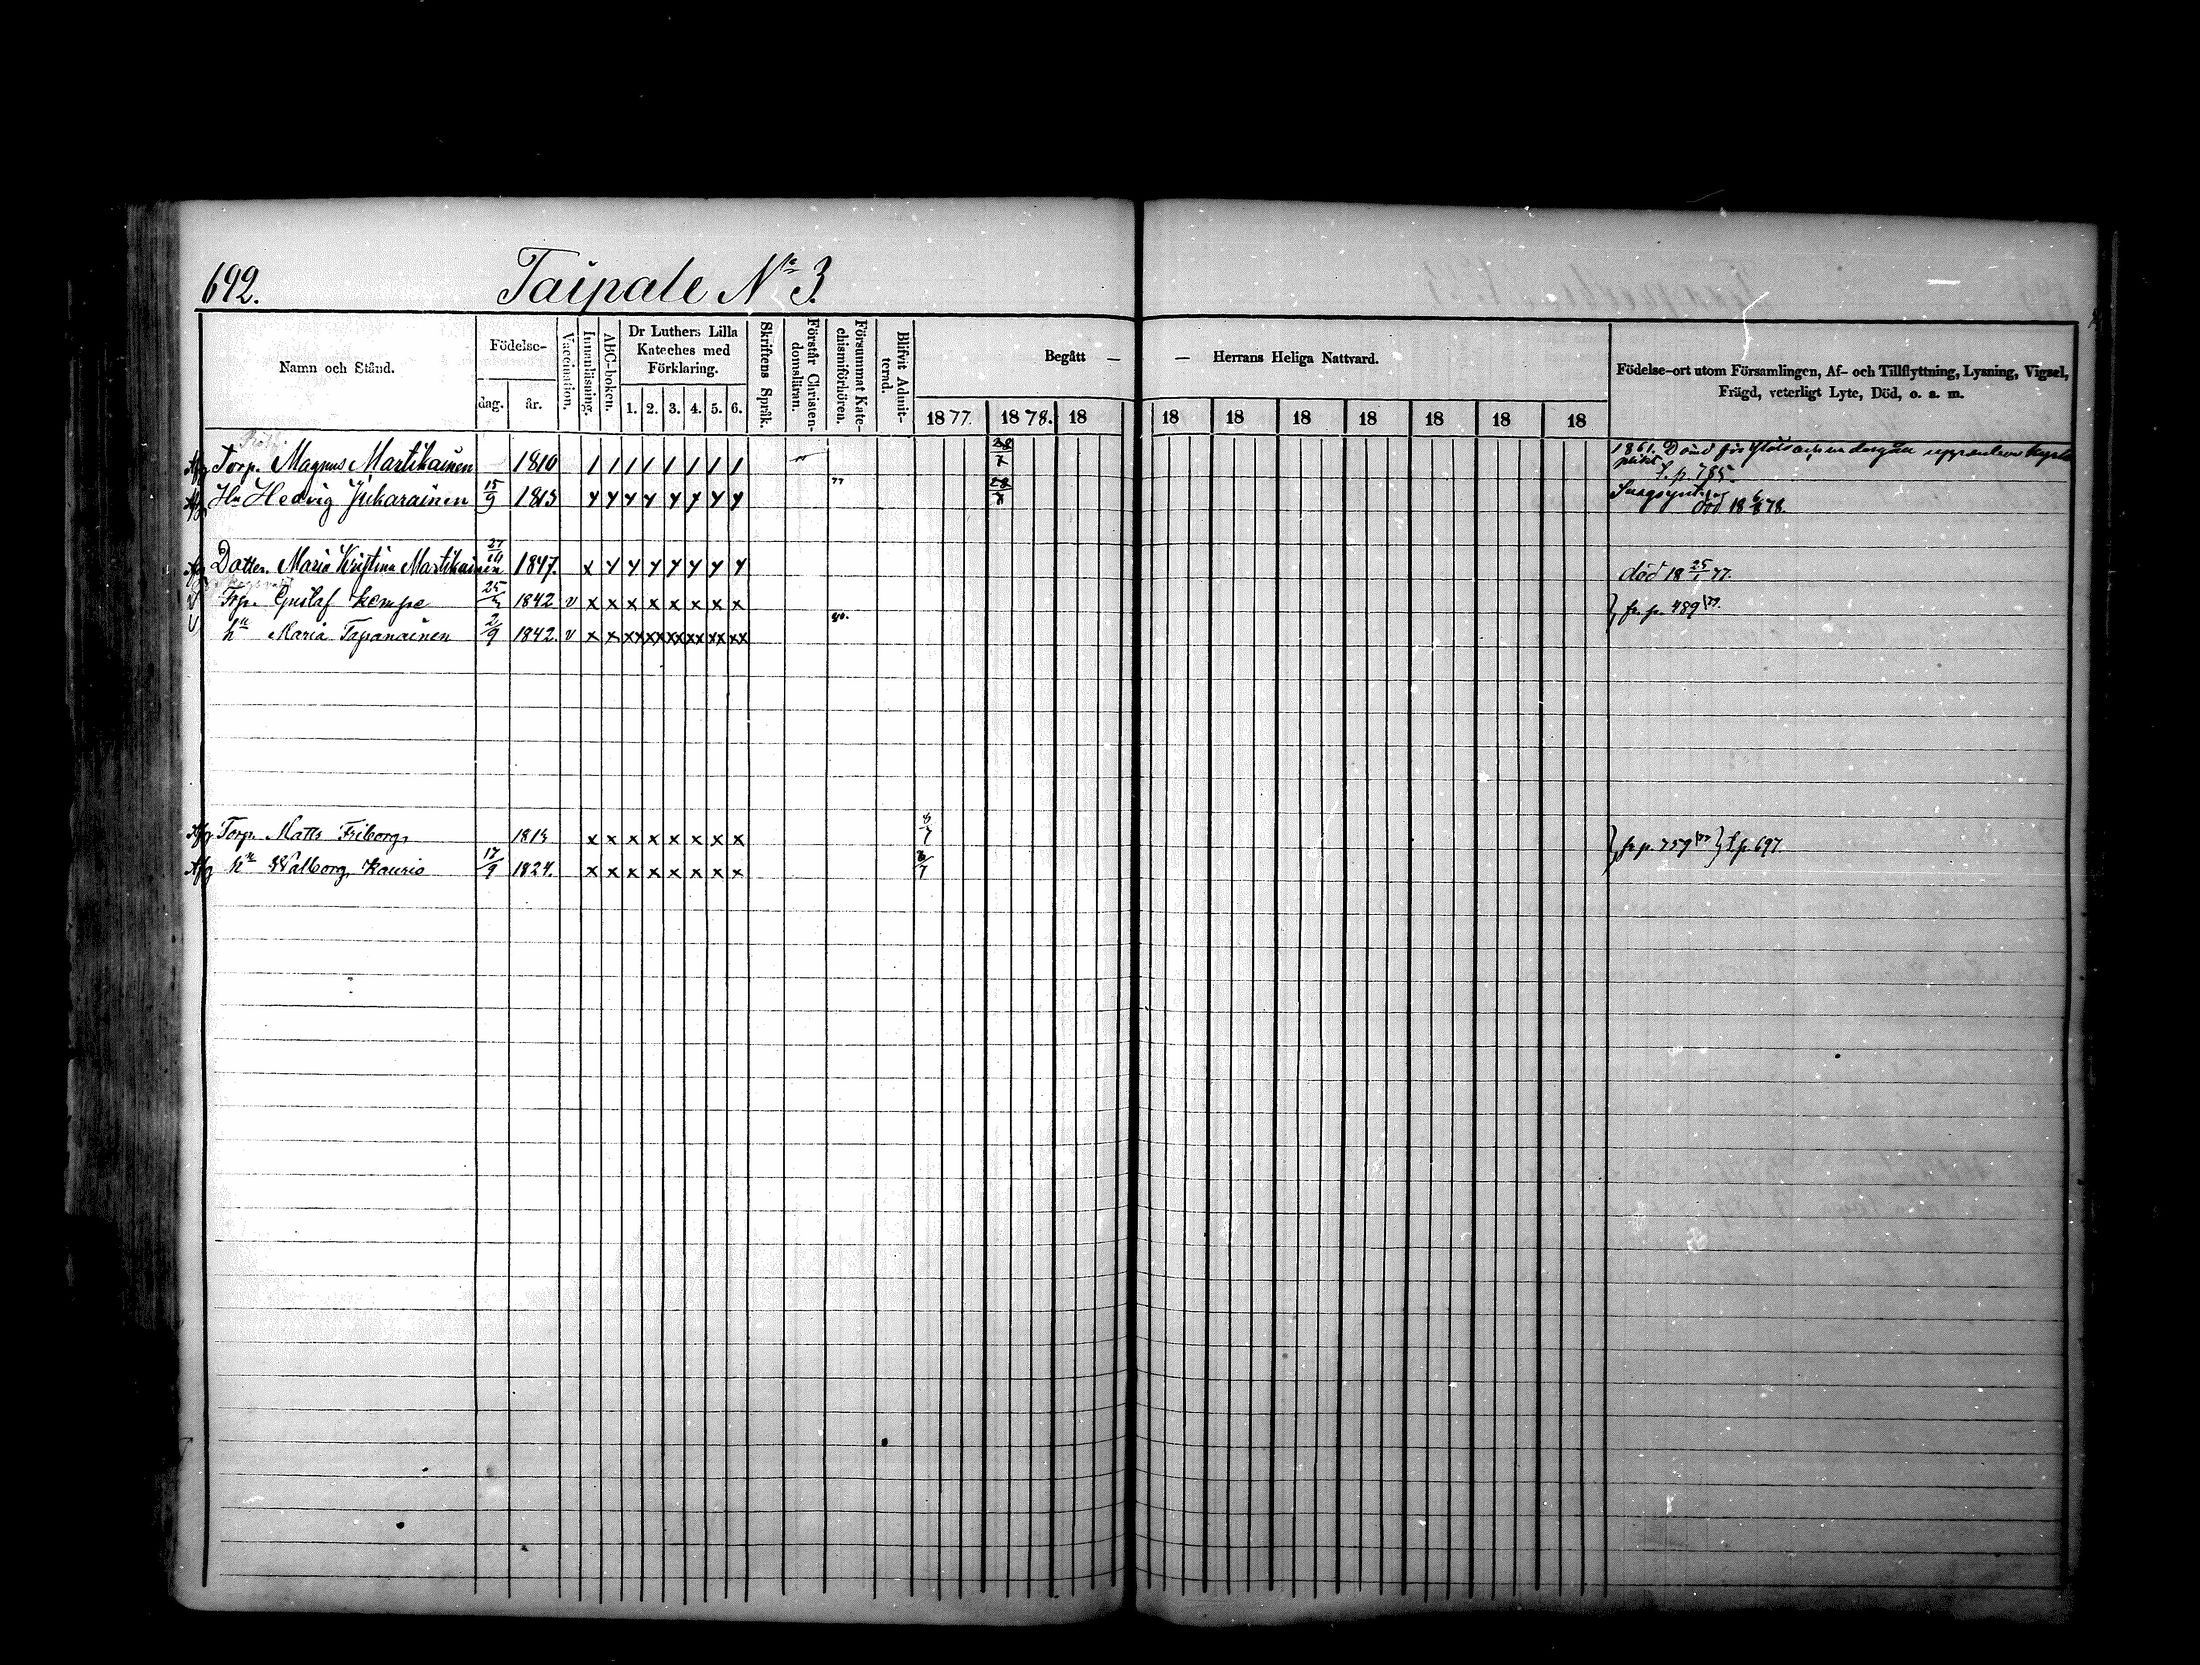 692. Taipale No 3.
Namn och Stånd. Födelse- dag. år. Vaccination. Innanläsning. ABC-boken. Dr Luthers Lilla Kateches med Förklaring. 1. 2. 3. 4. 5. 6. Skriftens Språk. Förstår Christendomsläran. Försummat Katechismiförhören. Blifvit Admitterad. Begått — — Herrans Heliga Nattvard. Födelse-ort utom Församlingen, Af- och Tillflyttning, Lysning, Vigsel, Frägd, veterligt Lyte, Död, o. a. m.
1877. 1878. 18 18 18 18 18 18 18 18
Afg Torp. Magnus Martikainen 1810 / / / / / / / / 28/7 1861. Dömd för
t. p. 785.
Afg Hu Hedvig Jukarainen 15/9 1813 77 28/7 Svagsynt. död 18 6/8 78.
Afg Dotter. Maria Kristina Martikainen 27/10 1847. död 18 25/1 77.
Trp. Gustaf Kempe 25/5 1842 v x x x x x x x x } fr. p. 489/77.
hu Maria Taponainen 2/9 1842. v x x xx xx xx xx xx xx
Afg. Torp. Matts Friborg, 1813 x x x x x x x x 8/7 } fr p. 759/77 } t. p. 697.
Afg hu Walborg, Kauris 17/9 1824. x x x x x x x x 8/7